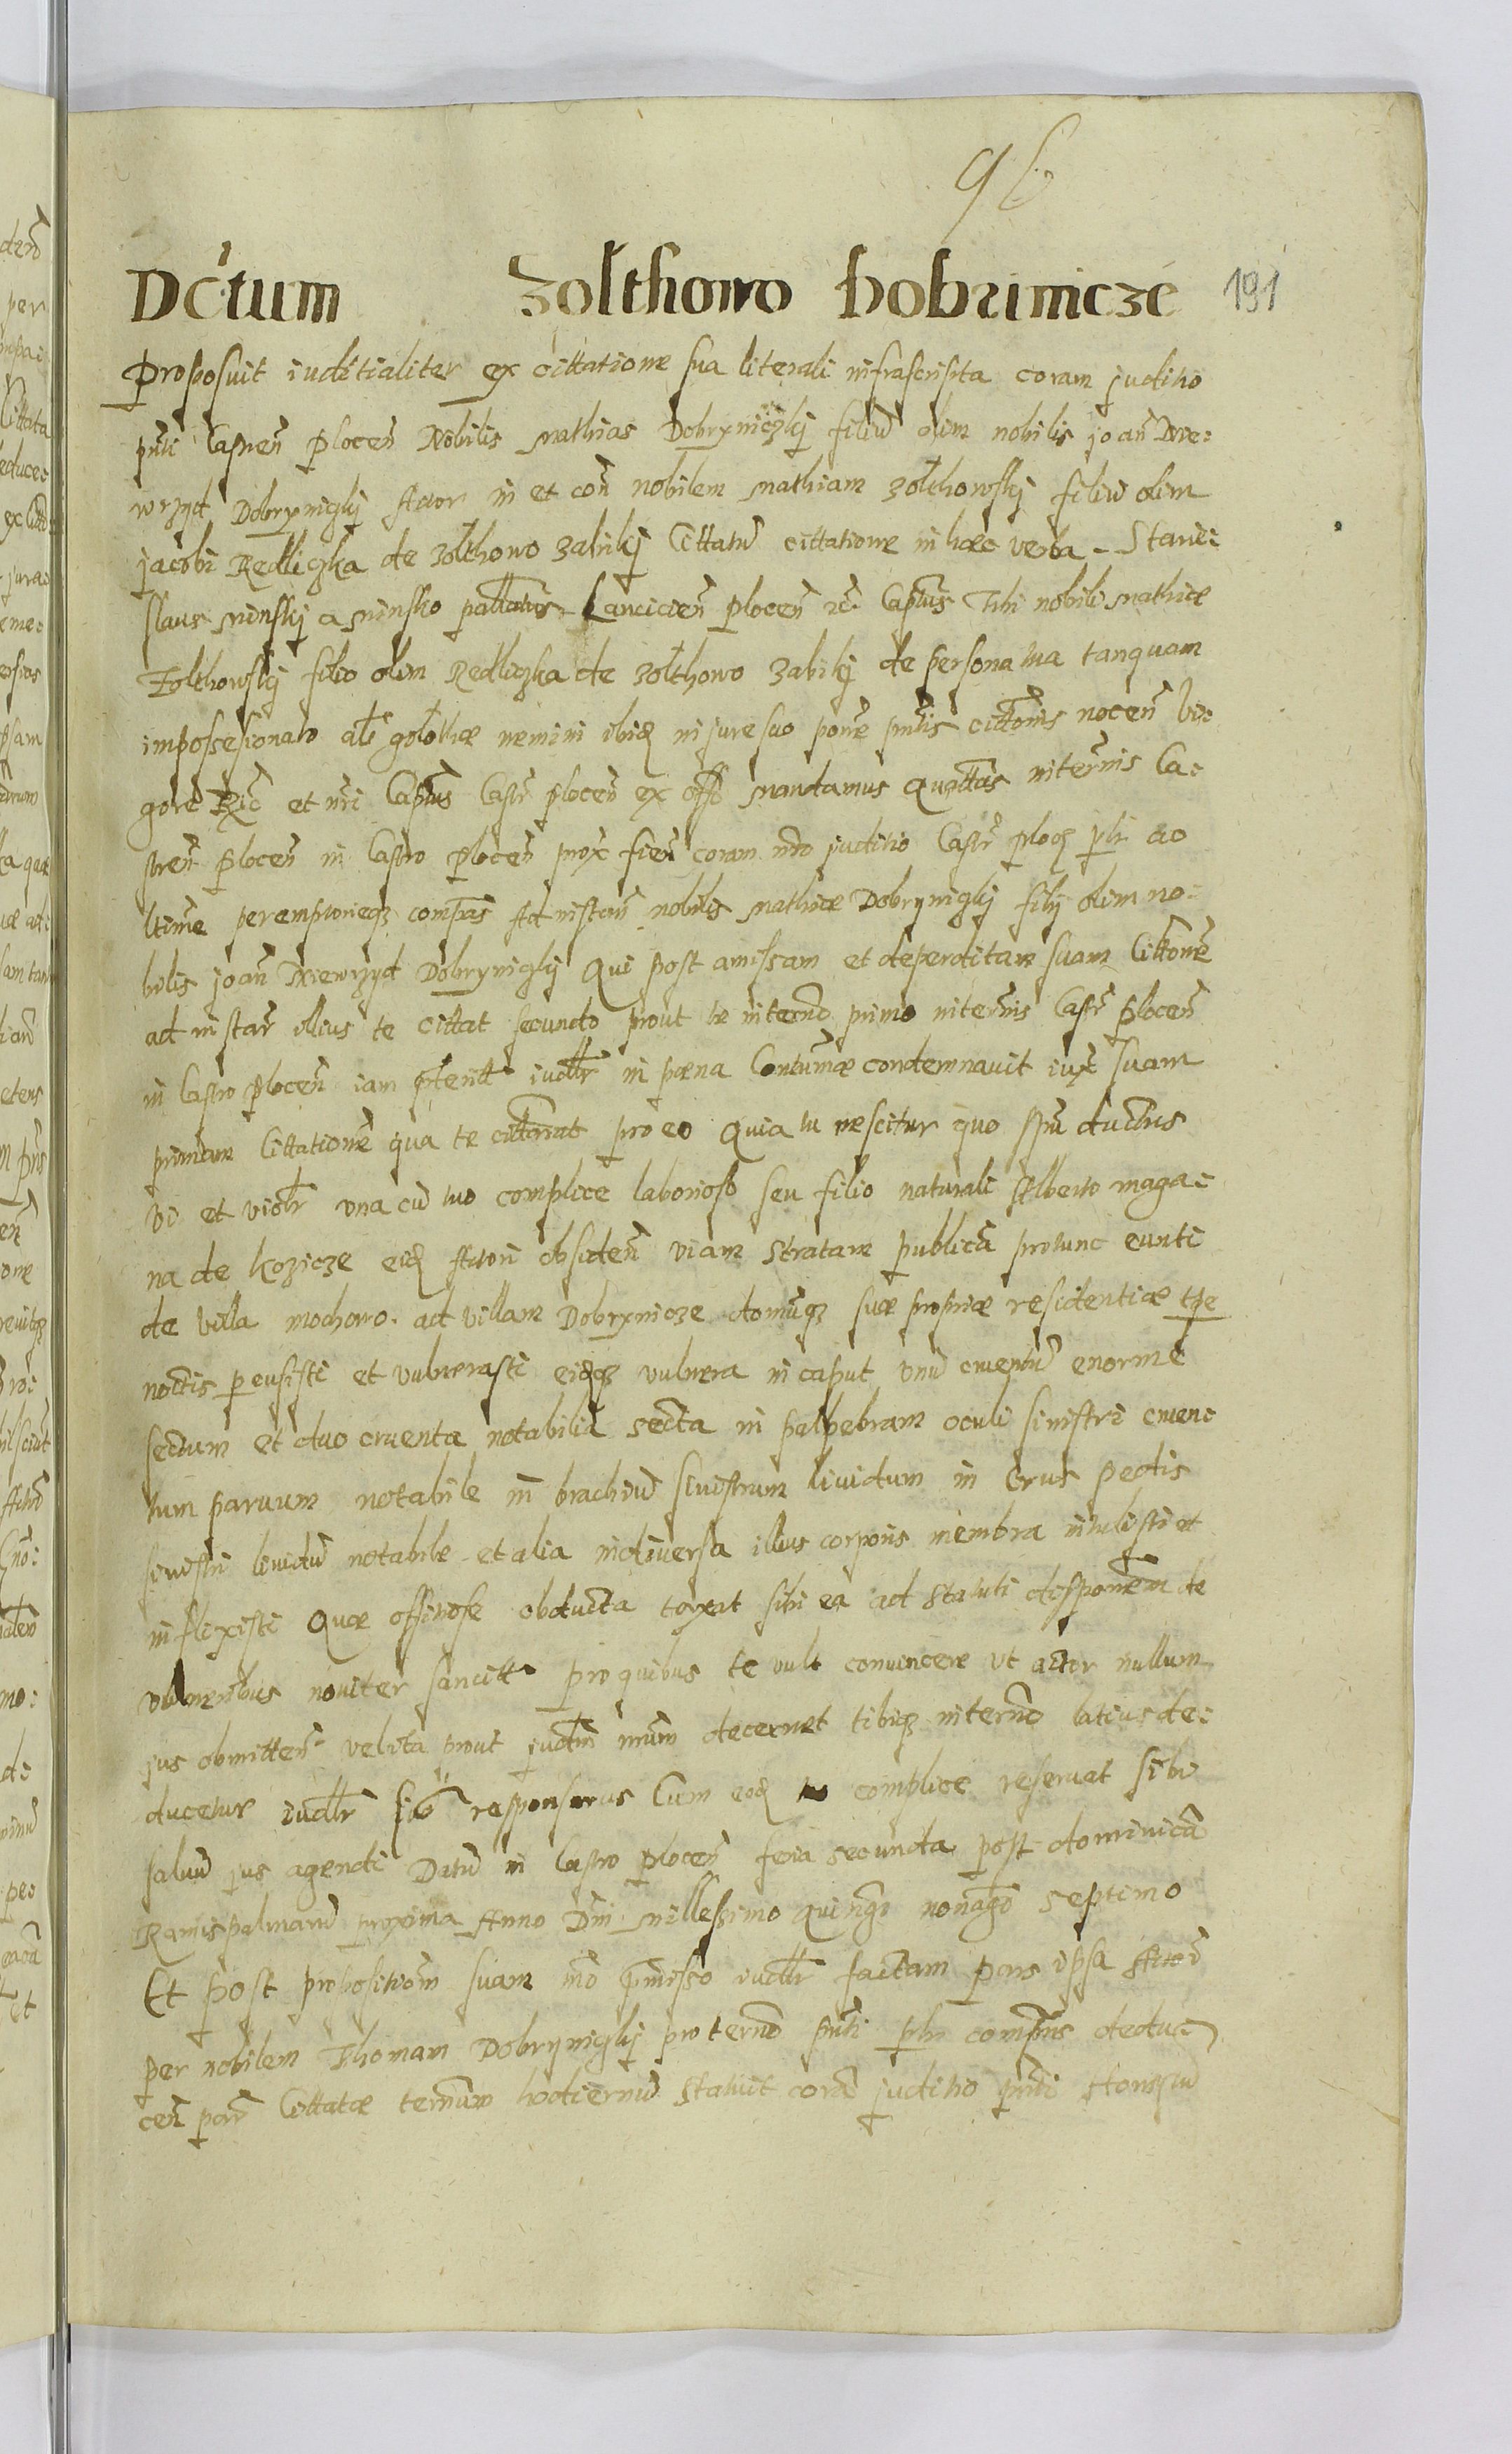 191
Dctum Zolthowo Dobrinicze
Proposuit iuditialiter ex cittatione sua literali infrascripta coram juditio
pnti Castren̄ plocen̄ Nobilis Mathias Dobryniczkj filiū olim nobilis joan̄ Nie⸗
wrzyd Dobrynigkj Actor in et con̄ nobilem Mathiam Zolthowskj filiū olim
jacobi Redliczka de Zolthowo Zabikj Cittatū cittatione in haec verba Stani⸗
slaus Minskj a Minsko pallatinus Lancicien̄ plocen̄ zc̄ Captus Tibi nobili Mathiæ
Zolthowskj filio olim Redliczka de Zolthowo Zabikj de persona tua tanquam
impossesionato al̄s golothæ nemini ibid in jure suo pone pntis cittonis nocen̄ Vi⸗
gore Ric̄ et nri Captus Castr̄ plocen̄ ex offo mandamus Quattas in ternis Ca⸗
stren̄ plocen̄ in Castro plocen̄ prox fien̄ coram nro juditio Castr̄ ploc plr ac
ltime peremptorieqz compas Ad instan̄ nobilis Mathiæ Dobrynigkj filij olim no⸗
bilis joan̄ Niewrzyd Dobrynigkj Qui post amissam et deperditam suam Cittonē
ad instar illius te Cittat secundo prout te in terno primo in ternis Castr̄ plocen̄
in Castro plocen̄ iam pteritt iudlr in pæna Contumæ condemnavit iux suam
primam Cittationē qua te citterat pro eo Quia tu nescitur quo spū ductus
Vi et violr una cū tuo complice laborioso seu filio naturali Alberto maga⸗
na de Kozicze eid Actori obsiden̄ viam stratam publicā protunc eunti
de villa mochowo ad villam Dobrynicze domūqz suæ propriæ residentiæ tpe
noctis percusisti et vulnerasti eidqz vulnera in caput unū cruentū enorme
sectum et duo cruenta notabilia secta in palpebram oculi sinistri cruen⸗
tum paruum notabile in brachiū sinistrum liuidum in crus pedis
sinistri liuidū notabile et alia in diversa illius corporis membra intulisti et
inflixisti Quæ offitiose obducta taxat sibi ea ad statuti disponem de
vulneribus noviter sancitt pro quibus te vult convincere ut actor nullum
jus obmitten̄ velita prout judm nrum decernet tibiqz in terno latius de⸗
ducetur iudlr sis responsurus Cum eod tuo complice reseruat sibi
saluū jus agendi Datū in Castro plocen̄ feria secunda post dominicā
Ramispalmarū proxima Anno Dni Millessimo quingmo nonagmo septimo
Et post propositionē suam mo pmisso iudlr factam pars ipsa Actor̄
per nobilem Thomam Dobrynigkj pro terno pnti plr compns dedu⸗
cen̄ par̄ Cittatæ terminum hodiernū statuit corā juditio pnti